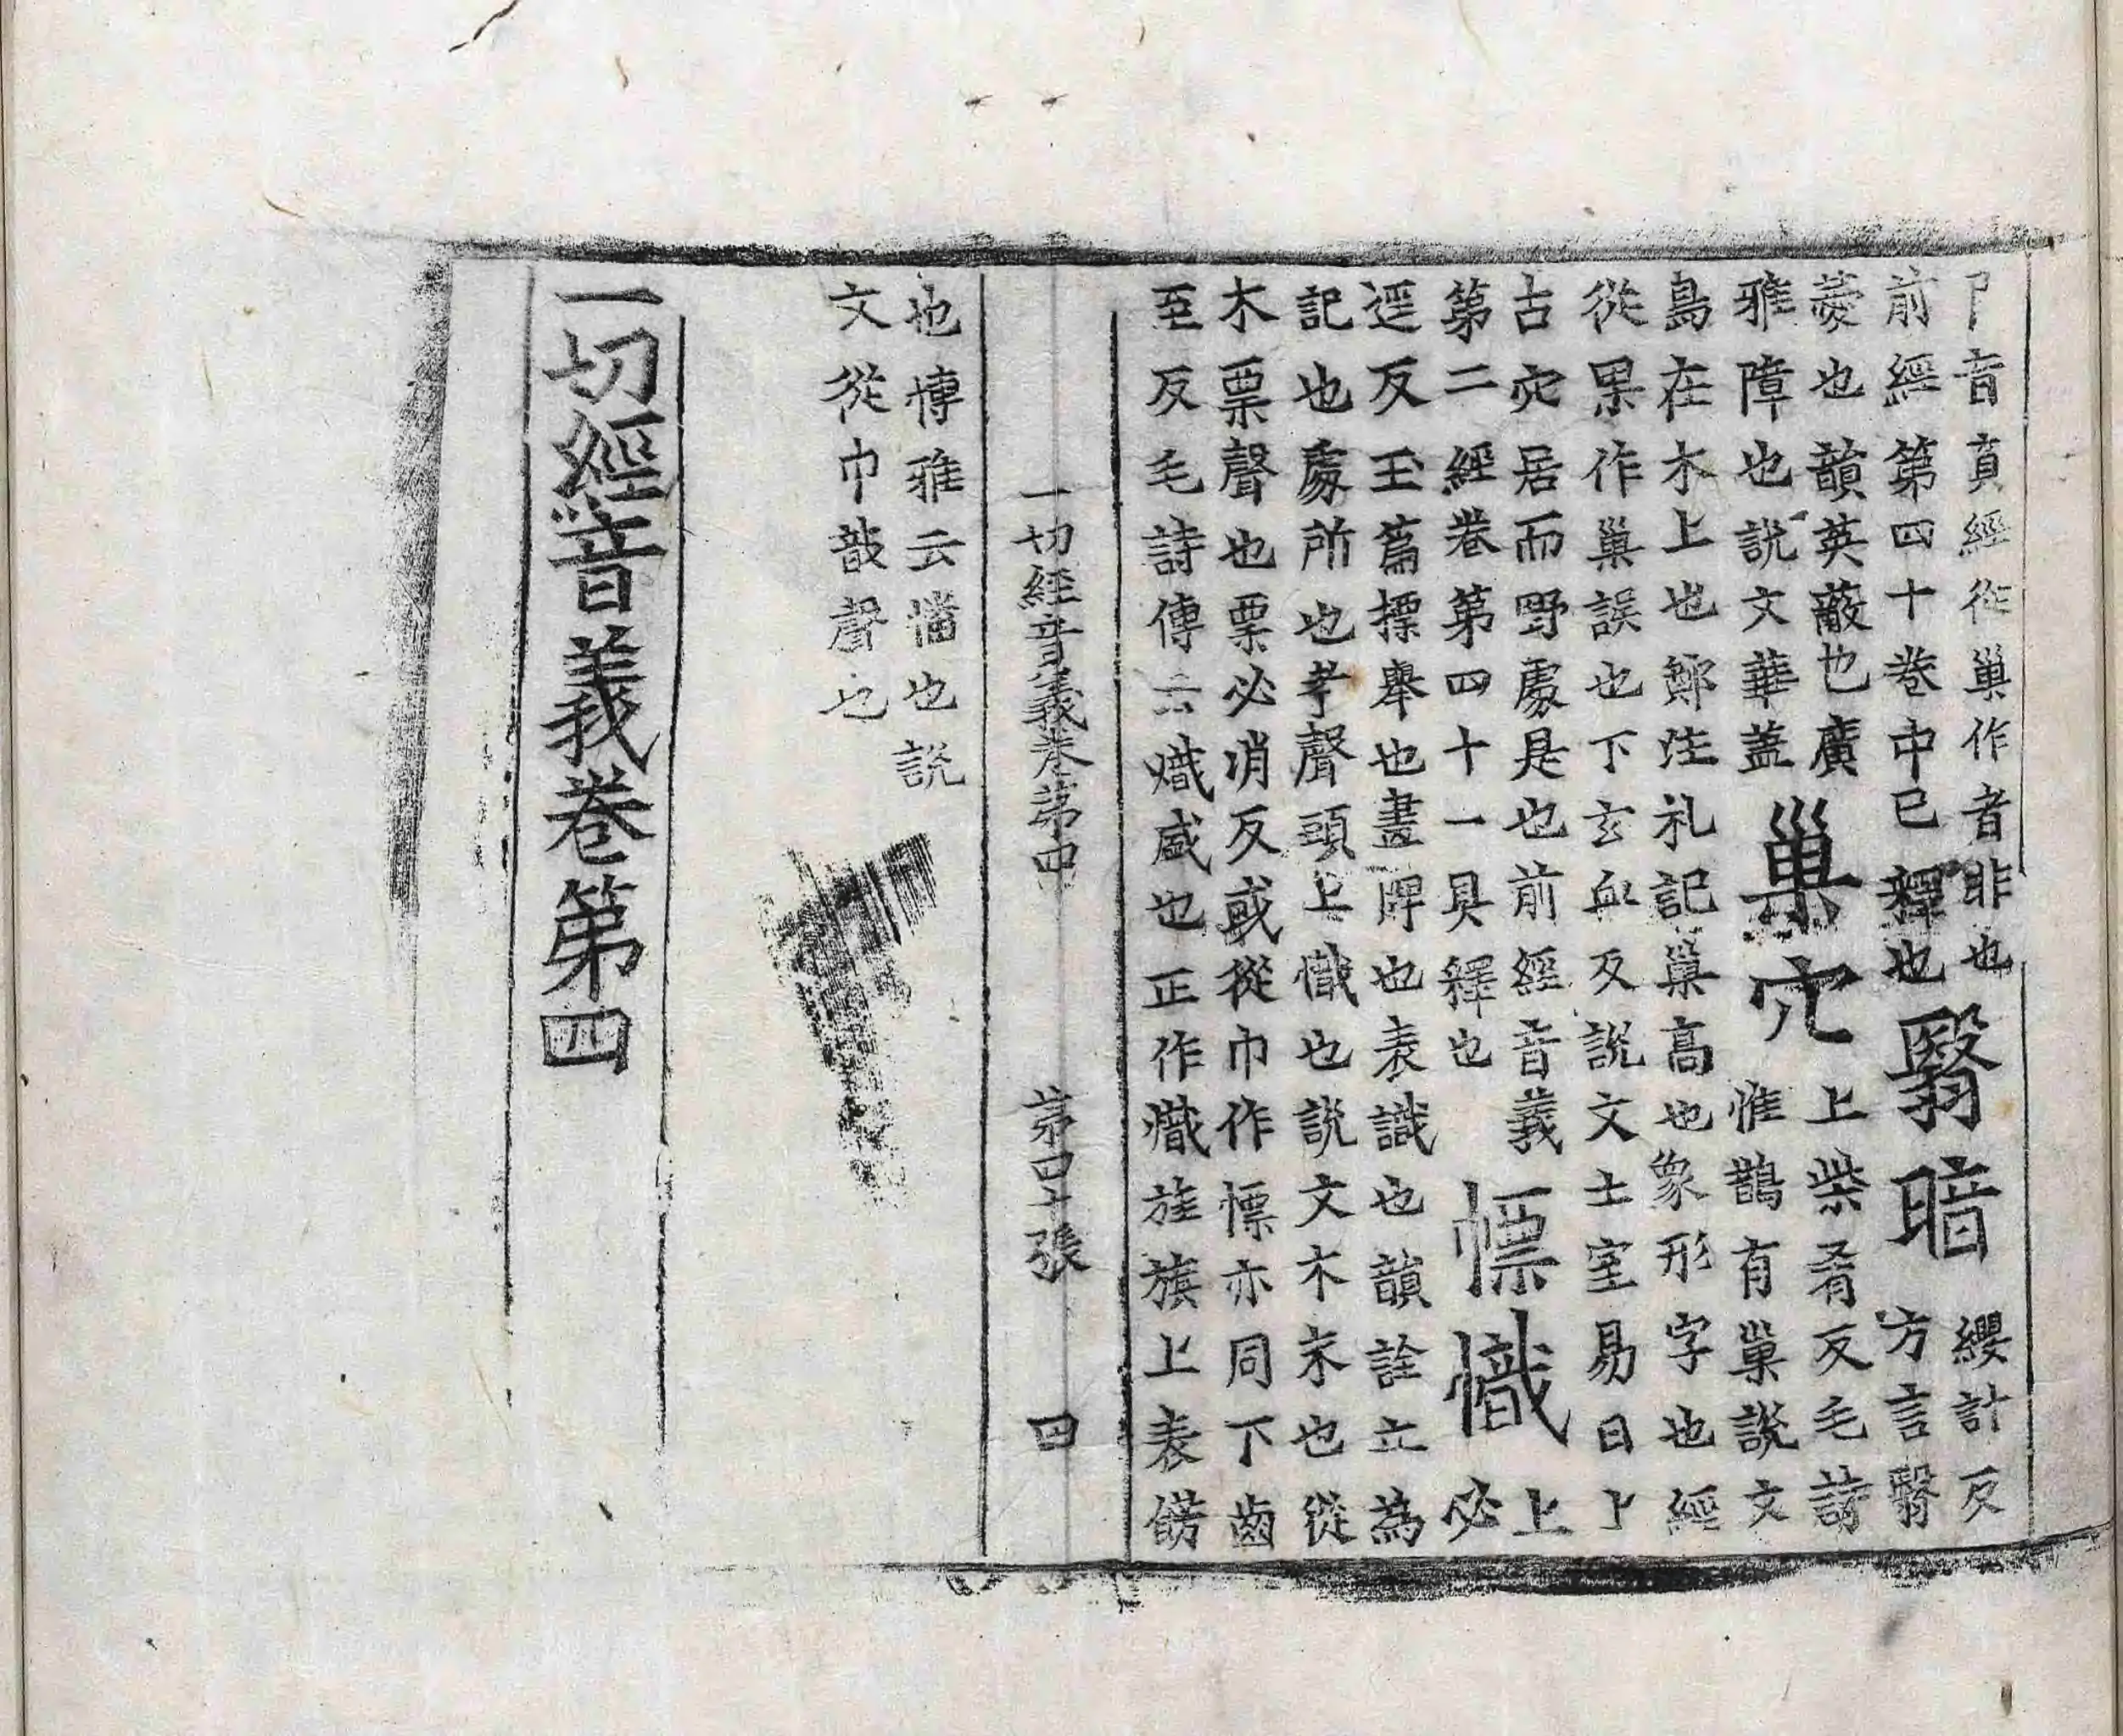 音頁經從巢作者非也
前經第四十卷中已釋也
翳暗
纓計反
方言翳
薆也韻英蔽也廣
雅障也說文華蓋
巢穴
上柴肴反毛詩
惟鵲有巢說文
鳥在木上也鄭注礼記巢高也象形字也經
從果作巢誤也下玄血反說文土室易曰上
古穴居而野處是也前經音義
第二經卷第四十一具釋也
幖幟
上
必
遥反玉篇摽舉也畫牌也表識也韻詮立為
記也處所也孝聲頭上幟也說文木末也從
木票聲也票必消反或從巾作幖亦同下齒
至反毛詩傳云熾盛也正作熾旌旗上表傍
一切經音義卷第四 第四十張 田
也博雅云幡也說
文從巾戠聲也
一切經音義卷第四